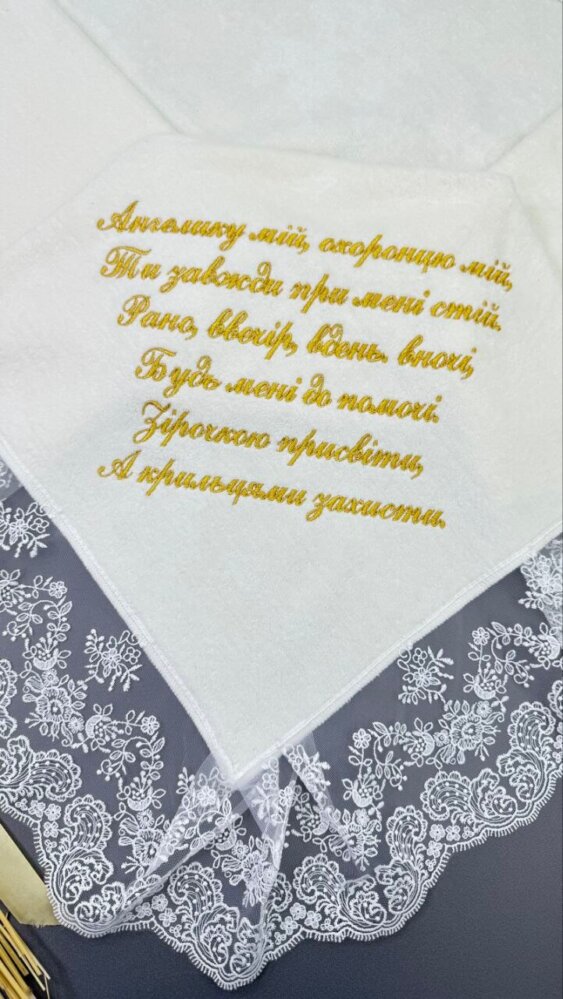 Ангелику мій, охоронцю мій,
Ти завжди при мені стій.
Рано, ввечір, вдень. вночі,
Будь мені до помочі.
Зірочкою присвіти,
А крильцями захисти.